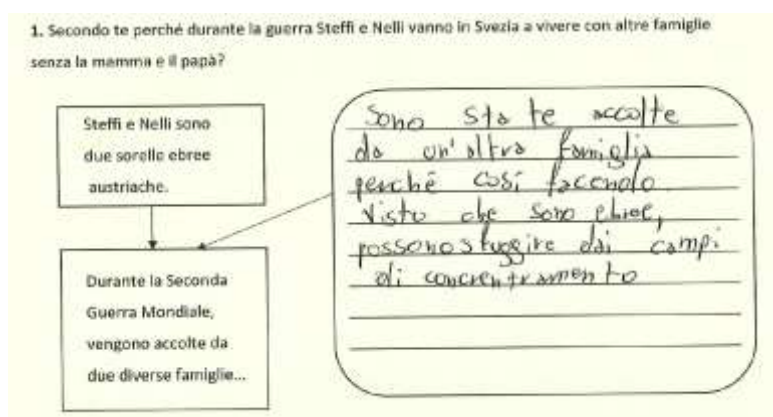 1. Secondo te perché durante la guerra Steffi e Nelli vanno in Svezia a vivere con altre famiglie
senza la mamma e il papà?
Steffi e Nelli sono
due sorelle ebree
austriache.
Durante la Seconda
Guerra Mondiale,
vengono accolte da
due diverse famiglie...
Sono state accolte
da un'altra famiglia
perché così facendo
visto che sono ebree,
possono sfuggire dai campi
di concrentramento